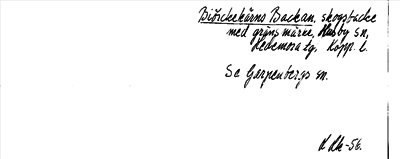 Bisickekärns Backan, skogsbacke
med gräns märke, Husby sn,
Hedemora tg. Kopp. l.
Se Garpenbergs sn.